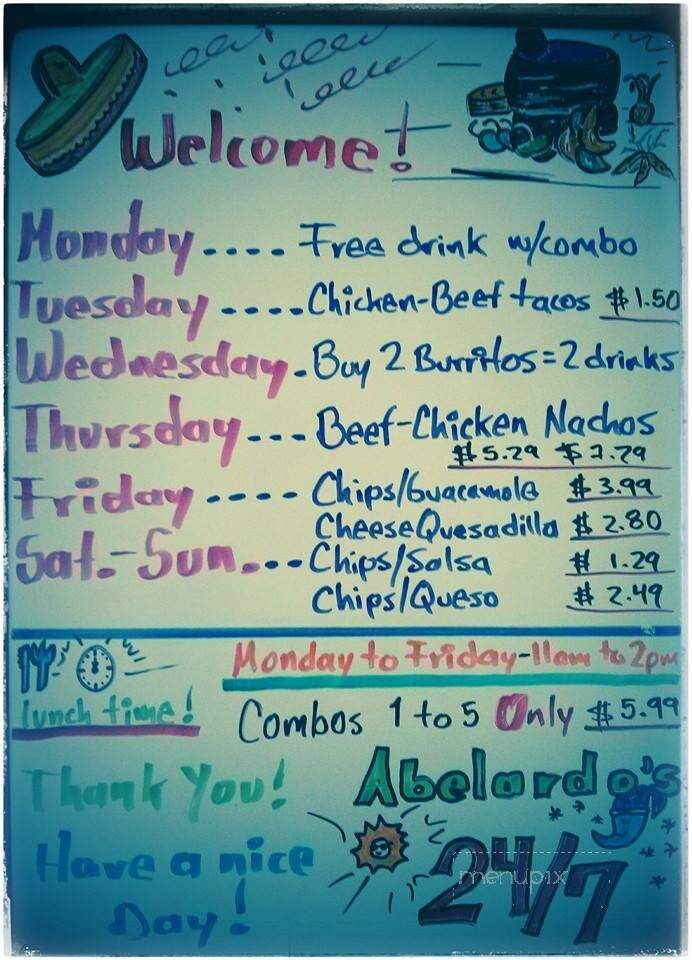 Welcome!
Monday.... Free drink w/combo
Tuesday....Chicken-Beef tacos $1.50
Wednesday.Buy 2 Burritos=2 drinks
Thursday... Beef-Chicken Nachos
$5.29 $
Friday.... Chips/Guacamole $3.99
Cheese Quesadilla $2.80
Sat.-Sun...Chips/Salsa $1.29
Chips/Queso $2.49
Monday to Friday-11am to 2pm
lunch time!
Combos 1 to 5 Only $5.99
Thank You! Abelardo's
Have a nice
Day!
24/7
menupix